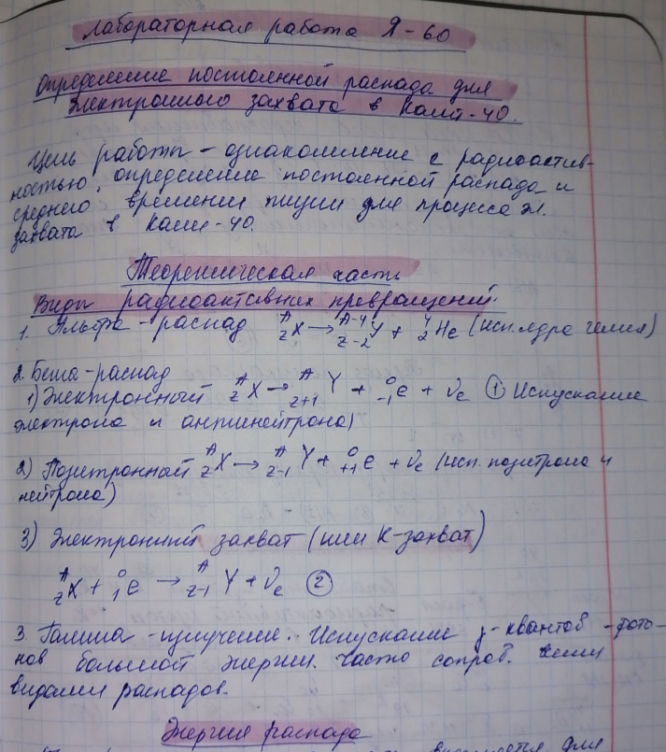 Лабораторная работа Я-60
Определение постоянной распада для
электронного захвата в Калий-40.
Цель работы - ознакомление с радиоактив-
ностью, определение постоянной распада и
среднего времени жизни для процесса эл.
захвата в Калий-40.
Теоретическая часть
Виды радиоактивных превращений.
1. Альфа-распад ᴬ_Z X → ᴬ⁻⁴_Z-2 Y + ⁴₂He (исп. ядра гелия)
2. Бета-распад
1) Электронный ᴬ_Z X → ᴬ_Z+1 Y + ⁰₋₁e + νe ① Испускание
электрона и антинейтрона)
2) Позитронный ᴬ_Z X → ᴬ_Z-1 Y + ⁰₊₁e + νe (исп. позитрона и
нейтрона)
3) Электронный захват (или К-захват)
ᴬ_Z X + ⁰₁e → ᴬ_Z-1 Y + νe ②
3. Гамма-излучение. Испускание γ-квантов - фото-
нов большой энергии. Часто сопров.
видами распадов.
Энергия распада
для